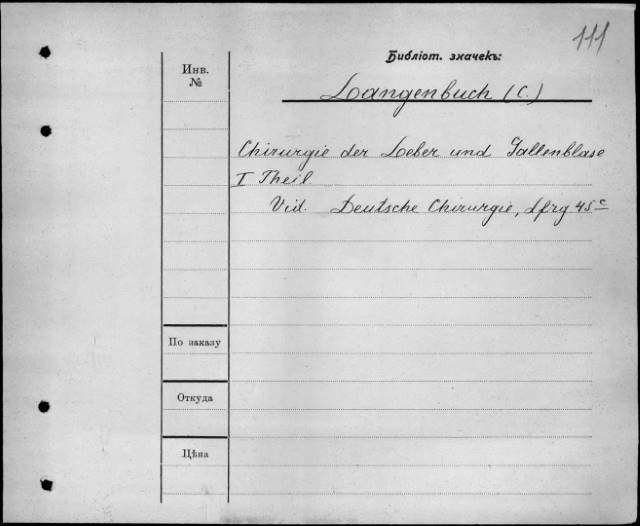 111
Библіот. значекъ:
Инв.
№
Langenbuch (C.)
Chirurgie der Leber und Gallenblase
I Theil.
Vid. Deutsche Chirurgie, Lfrg 45 c
По заказу
Откуда
Цѣна